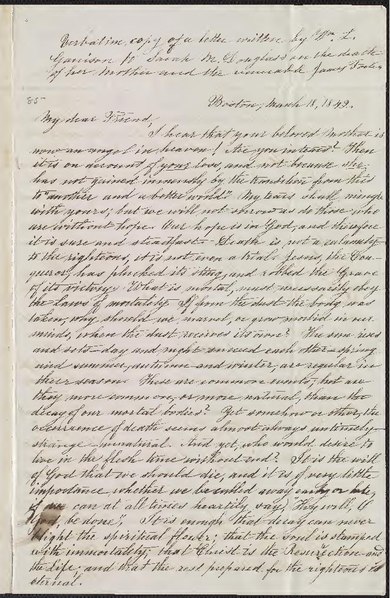 Verbatim copy of a letter written by Wm. L.
Garrison to Sarah M. Douglass on the death
of her Mother and the venerated James Forten
Boston, March 18, 1842.
My dear Friend,
I hear that your beloved Mother is
now an angel in heaven! Are you in tears? Then
it is on account of your loss, and not because she
has not gained immensely by the transition from this
to "another and a better world." My tears shall mingle
with yours; but we will not sorrow as do those who
are without hope. Our hope is in God, and therefore
it is sure and steadfast. Death is not a calamity
to the righteous, it is not even a trial. Jesus, the Con-
queror, has plucked its sting, and robbed the Grave
of its victory. What is mortal, must necessarily obey
the Laws of mortality. If from the dust the body was
taken, why should we marvel, or grow morbid in our
minds, when the dust receives its own? The sun rises
and sets day and night succeed each other spring
and summer, autumn and winter, are regular in
their seasons. These are common events; but are
they more common, or more natural, than the
decay of our mortal bodies? Yet somehow or other, the
occurrence of death seems almost always untimely
strange unnatural. And yet, who would desire to
live in the flesh time without end? It is the will
of God that we should die, and it is of very little
importance, whether we be called away early or late,
if we can at all times heartily say, "Thy will, O
God, be done," It is enough that decay can never
blight the spiritual flower; that the soul is stamped
with immortality; that Christ is the Resurrection and
the Life; and that the rest prepared for the righteous is
eternal.